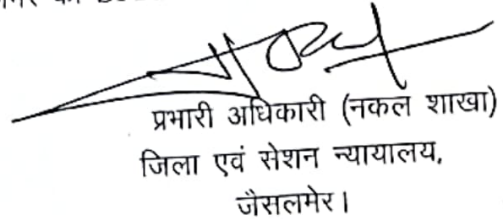 प्रभारी अधिकारी (नकल शाखा)
जिला एवं सेशन न्यायालय,
जैसलमेर।